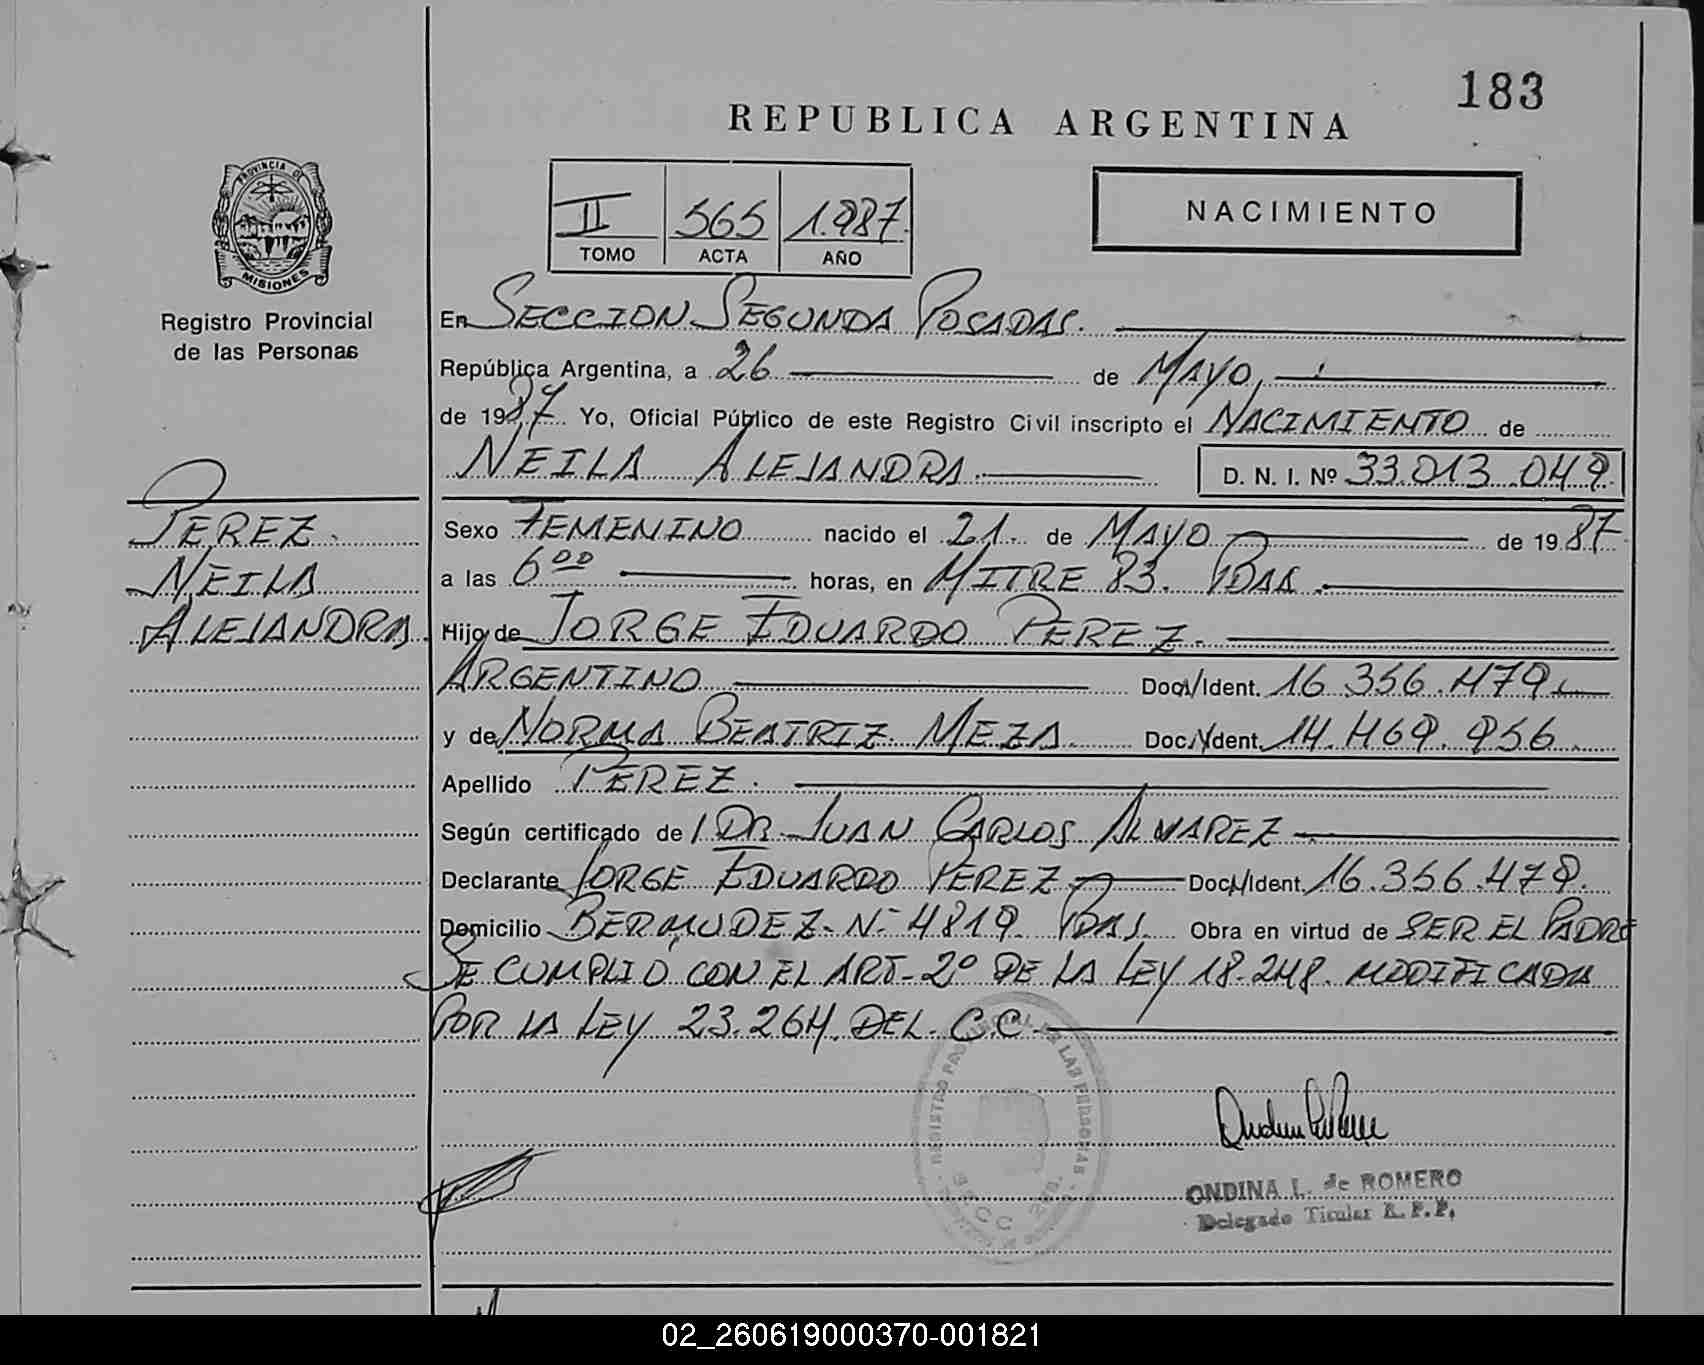 183
REPUBLICA ARGENTINA
PROVINCIA DE
MISIONES
Registro Provincial
de las Personas
II 565 1.987.
TOMO ACTA AÑO
NACIMIENTO
En SECCION SEGUNDA POSADAS.
República Argentina, a 26 de MAYO,
de 1987. Yo, Oficial Público de este Registro Civil inscripto el NACIMIENTO de
NEILA ALEJANDRA. D. N. I. Nº 33.013.049.
PEREZ.
NEILA
ALEJANDRA.
Sexo FEMENINO nacido el 21. de MAYO de 1987
a las 6⁰⁰ horas, en MITRE 83. PDAS.
Hijo de JORGE EDUARDO PEREZ.
ARGENTINO Doc./Ident. 16.356.479.
y de NORMA BEATRIZ MEZA. Doc./Ident. 14.469.956.
Apellido PEREZ.
Según certificado de DR. JUAN CARLOS ALVAREZ
Declarante JORGE EDUARDO PEREZ Doc./Ident. 16.356.479.
Domicilio BERMUDEZ. Nº 4819. PDAS. Obra en virtud de SER EL PADRE
SE CUMPLIO CON EL ART-2º DE LA LEY 18.248. MODIFICADA
POR LA LEY 23.264. DEL. C.C.
REGISTRO PROVINCIAL DE LAS PERSONAS
ONDINA L. de ROMERO
Delegado Titular R. P. P.
02_260619000370-001821